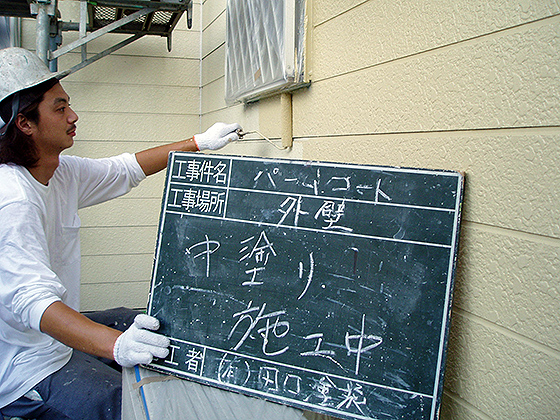 工事件名 パートコート
工事場所 外壁
中塗り
施工中
工者 (有)田口塗装